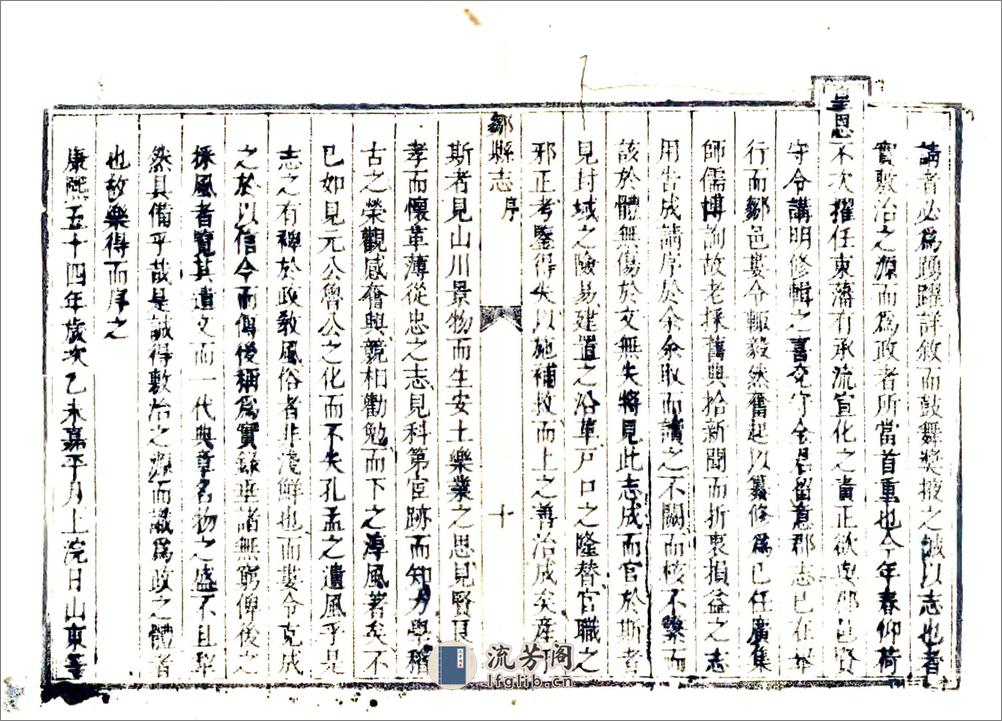 請者必爲踴躍詳敘而鼓舞獎掖之誠以志也者
實敷治之源而爲政者所當首重也今年春仰荷
聖恩不次擢任東藩有承流宣化之責正欲與郡邑賢
守令講明修輯之書兖守金君留意郡志已在舉
行而鄒邑婁令輒毅然奮起以纂修爲已任廣集
師儒博詢故老採舊與拾新聞而折衷損益之志
用告成請序於余余取而讀之不闕而核不縈而
該於體無傷於文無失將見此志成而官於斯者
見封域之險易建置之沿革戸口之隆替官職之
邪正考鑒得失以施補救而上之善治成矣産
鄒縣志 序 十
斯者見山川景物而生安土樂業之思見賢良
孝而懷革薄從忠之志見科第宦跡而知力學稽
古之榮觀感奮興競相勸勉而下之淳風著矣不
已如見元公魯公之化而不失孔孟之遺風乎是
志之有裨於政敎風俗者非淺鮮也而婁令克成
之於以信今而傳後稱爲實錄垂諸無窮俾後之
採風者覽其遺文而一代典章名物之盛不且犂
然具備乎哉是誠得敷治之源而識爲政之體者
也故樂得而序之
康熙五十四年歲次乙未嘉平月上浣日山東等
流芳阁
lfglib.cn